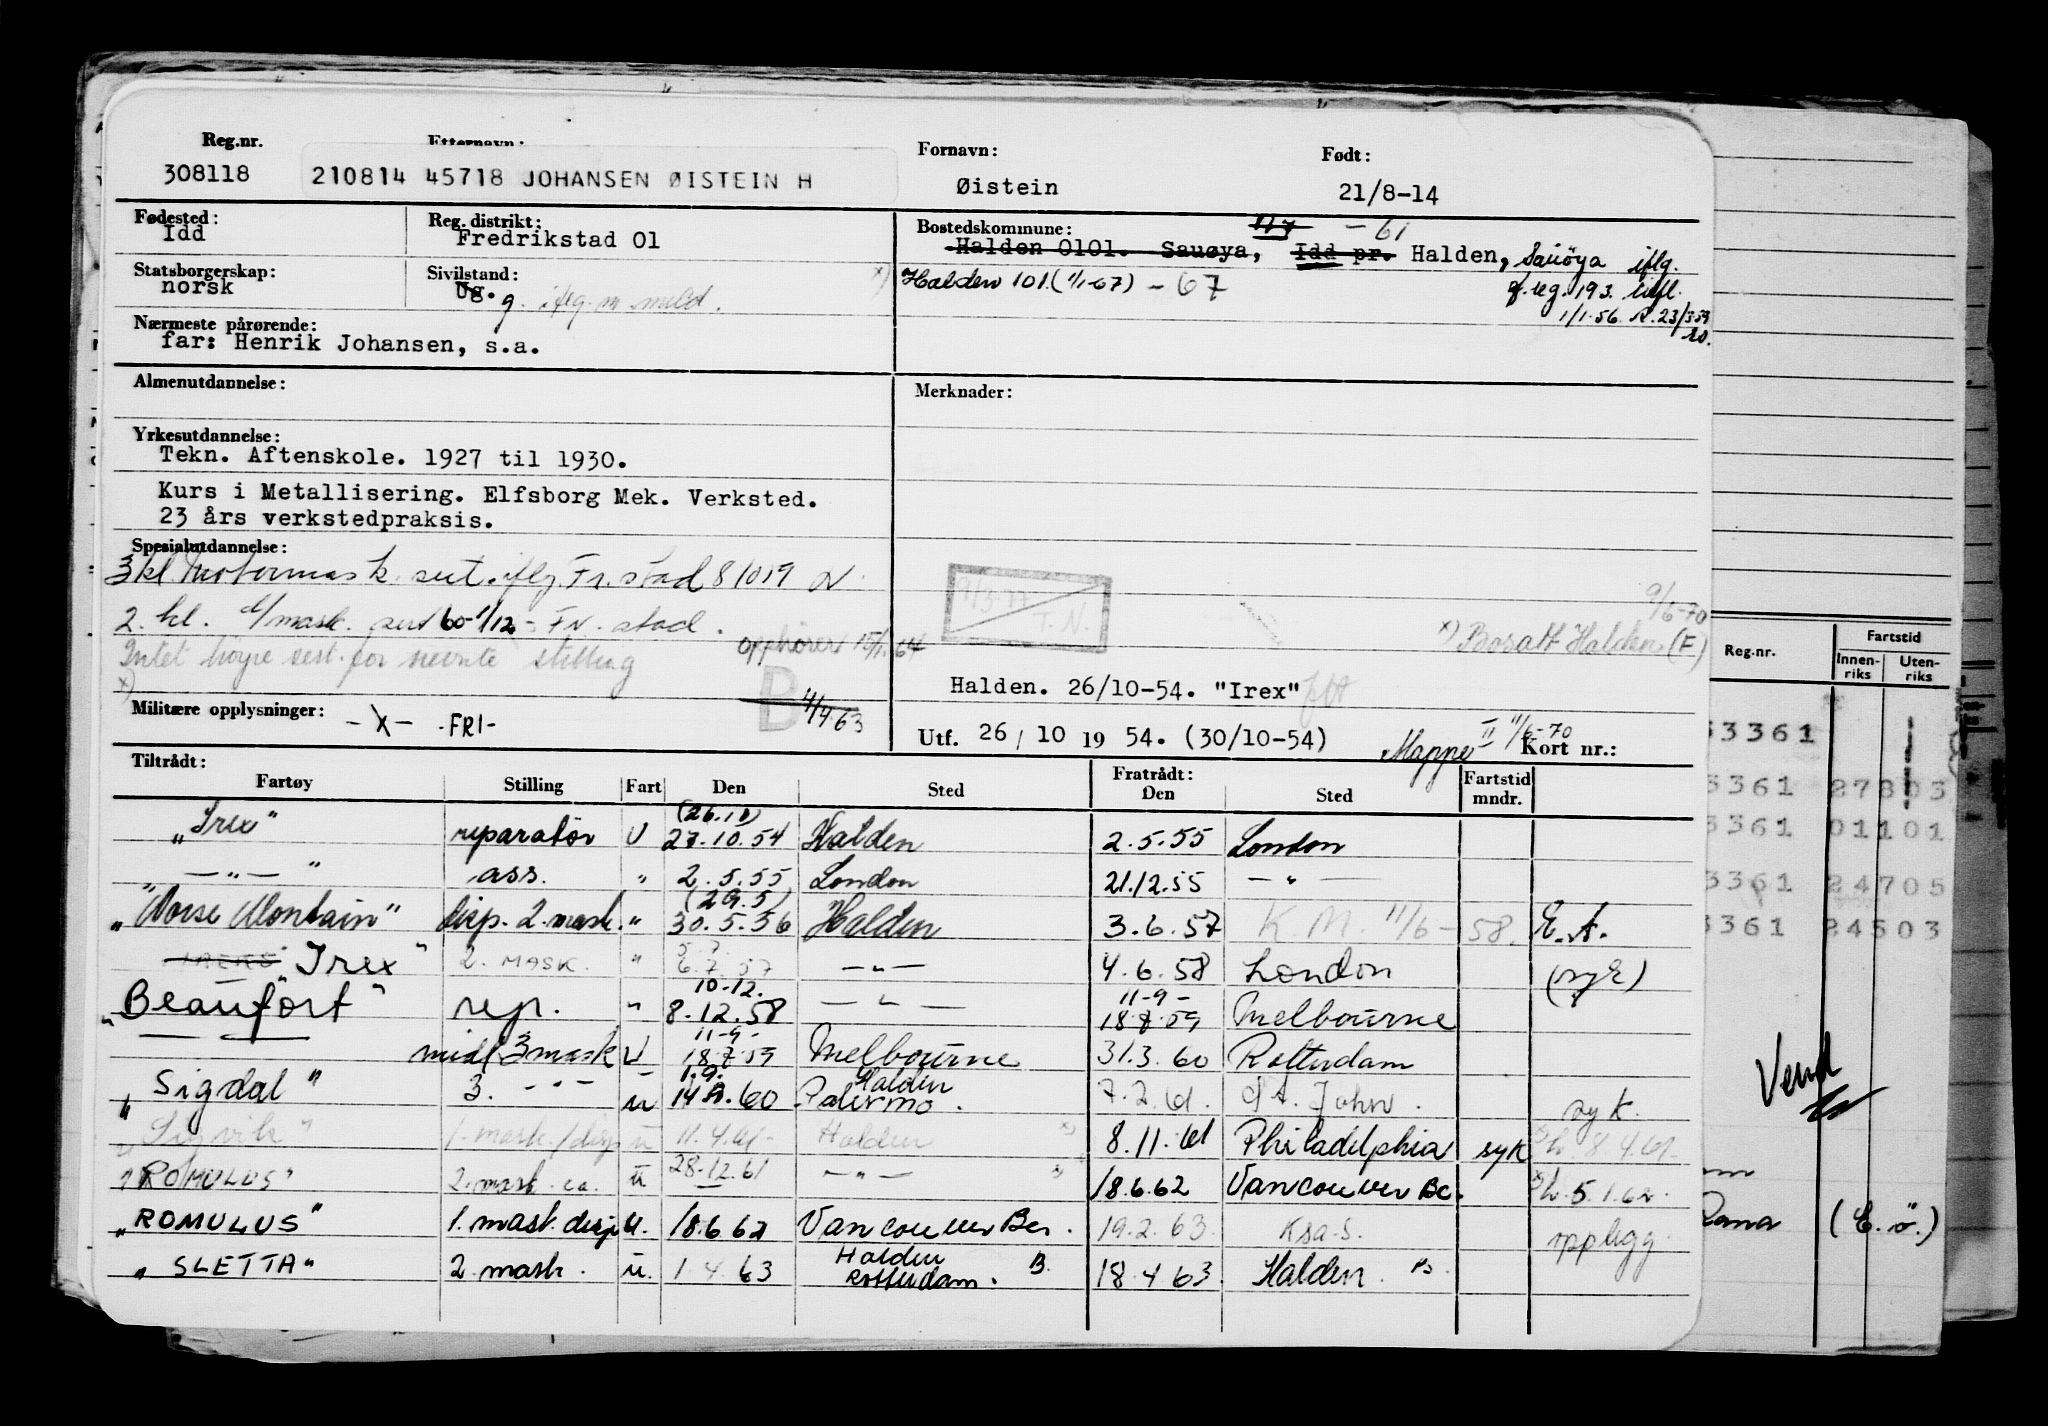 Reg.nr. Etternavn: Fornavn: Født:
308118 210814 45718 JOHANSEN ØISTEIN H Øistein 21/8-14
Fødested: Idd
Reg. distrikt: Fredrikstad 01
Bostedskommune: 11/7 - 61
Halden 0101. Sauøya, Idd pr. Halden, Sauøya iflg.
Statsborgerskap: norsk
Sivilstand: Ug. g. iflg. m. meld.
x) Halden 101 (1/1-67) - 67
1/1-56
Nærmeste pårørende:
far: Henrik Johansen, s.a.
Almenutdannelse:
Merknader:
Yrkesutdannelse:
Tekn. Aftenskole. 1927 til 1930.
Kurs i Metallisering. Elfsborg Mek. Verksted.
23 års verkstedpraksis.
Spesialutdannelse:
3 kl Motormask. sert. iflg. Fr.stad 8/10 19
2. kl. mask. sert 60-1/12 - Fr. stad.
opphører 15/1.64
Intet høyre sest. for nevnte stilling
x)
T. N.
9/6-70
x) Bosatt Halden (F)
Halden. 26/10-54. "Irex"
B 4/4.63
Militære opplysninger: - X - -FRI-
Utf. 26/10 19 54. (30/10-54) Mappe II 11/6-70 Kort nr.:
Tiltrådt: Fratrådt:
Fartøy Stilling Fart Den Sted Den Sted Fartstid mndr.
"Irex" reparatør U (26.10) 27.10.54 Halden 2.5.55 London
" — " — " ass. " 2.5.55 London 21.12.55 — " —
"Norse Montain" disp. 2. mask. " (29.5) 30.5.56 Halden 3.6.57 K.M. 11/6-58. E.A.
"Irex" 2. MASK. " 5.7. 6.7.57 — " — 4.6.58 London
"Beaufort" rep. " 10-12. 8.12.58 — " — 11-9- 18.7.59 Melbourne
— — midl 3 mask U 11-9- 18.7.59 Melbourne 31.3.60 Rotterdam
"Sigdal" 3. - " - u 1.9. 14.9.60 Halden Palermo. 7.2.61. St. John. syk.
"Sigvik" 1. mask./disp u 11.4.61- Halden x) 8.11.61 Philadelphia syk 8.4.61-
"ROMULUS" 2. mask. ca. u 28.12.61 — " — 18.6.62 Vancouver Bc. 5.1.62-
"ROMULUS" 1. mask. disp u. 18.6.62 Vancouver Bc. 19.2.63. Ksa-s. opplegg.
"SLETTA" 2. mask. u. 1.4.63 Halden Rotterdam. B. 18.4.63. Halden.
Reg.nr. Fartstid
Innenriks Utenriks
33361
3361 27803
3361 01101
3361 24705
3361 24503
Vend
Rana (E.ø.)